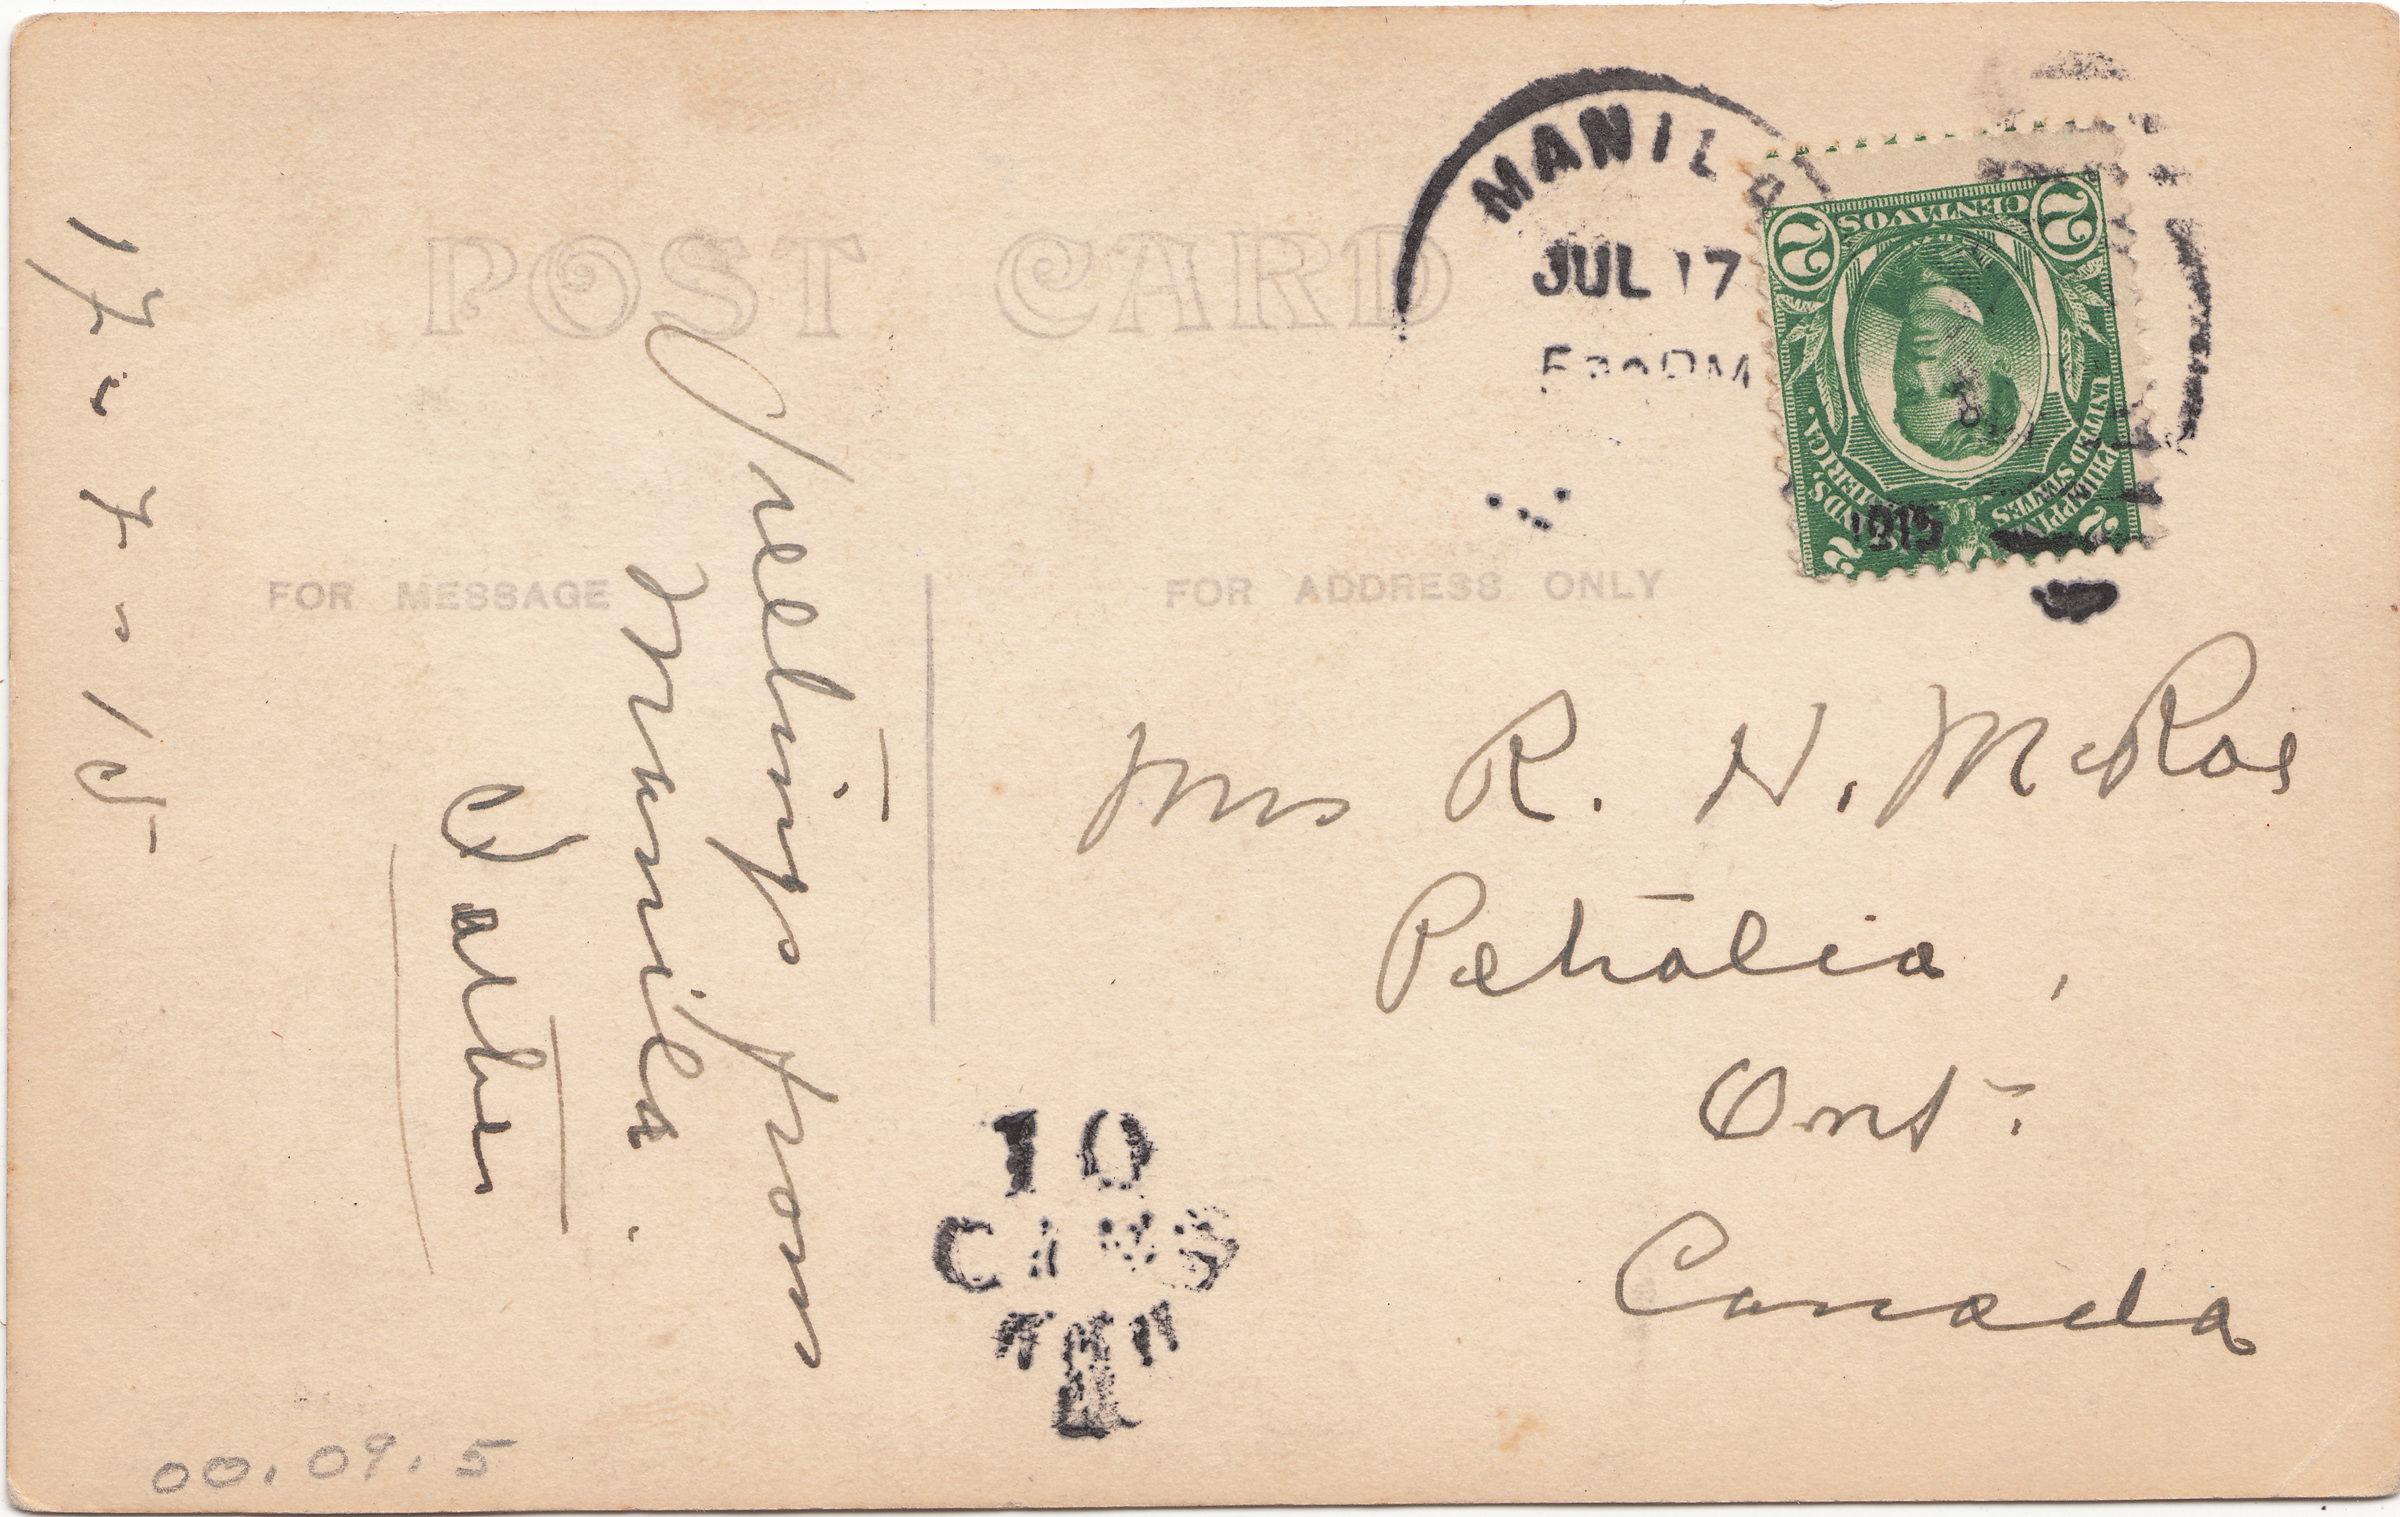 POST CARD
FOR MESSAGE
FOR ADDRESS ONLY
MANILA
JUL 17
1915
2 CENTAVOS 2
PHILIPPINE ISLANDS.
UNITED STATES OF AMERICA.
2 2
17-7-15
Greetings from
Manila.
Walter
Mrs R. H. McRae
Petrolia,
Ont.
Canada
10
00.09.5